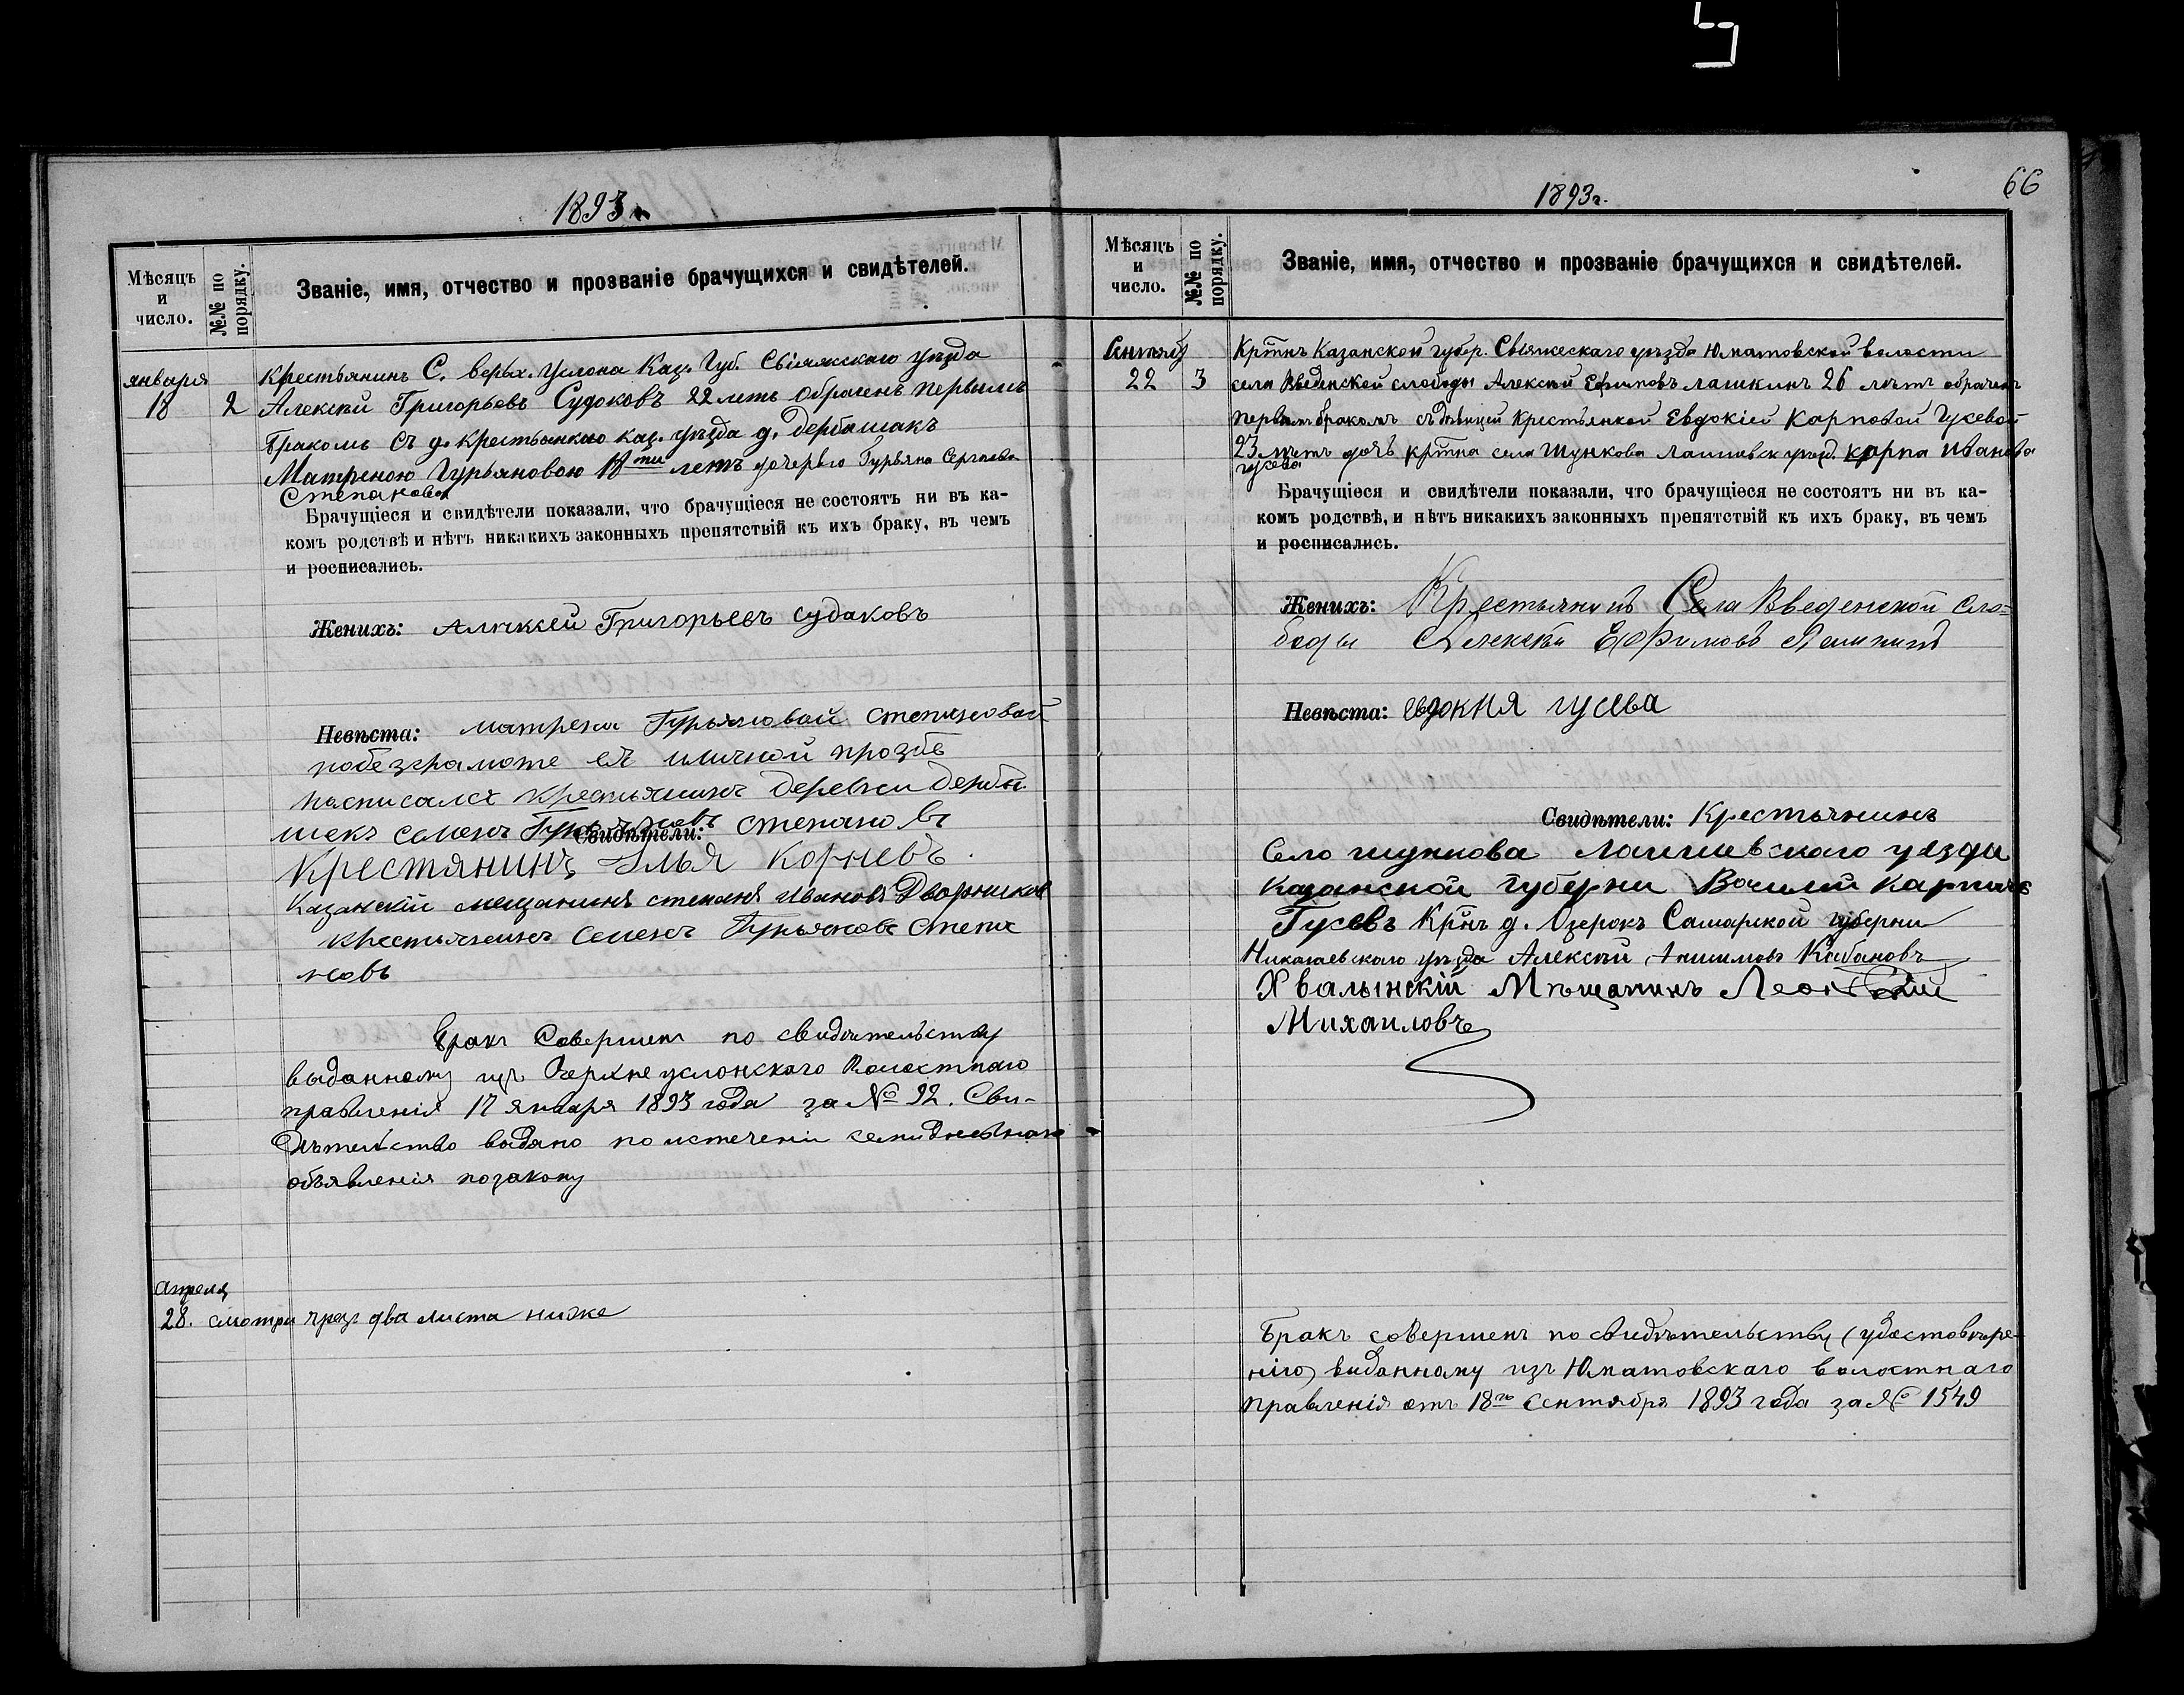 1893 г.
Мѣсяцъ и число.
№№ по порядку.
Званіе, имя, отчество и прозваніе брачущихся и свидѣтелей.
января
18
2
Крестьянинъ С. верх. Услона Каз. Губ. Свіяжскаго уѣзда
Алексѣй Григорьевъ Судоковъ 22 летъ обраченъ первымъ
бракомъ съ д. крестьянкаю каз. уѣзда д. дербышакъ
Матреною Гурьяновою 18ти летъ дочерью Гурьяна Сергѣева
Степанова
Брачущіеся и свидѣтели показали, что брачущіеся не состоятъ ни въ ка-
комъ родствѣ и нѣтъ никакихъ законныхъ препятствій къ ихъ браку, въ чемъ
и росписались.
Женихъ: Алѣкксей Григорьевъ судаковъ
Невѣста: матрена Гурьяновай степановай
побезграмоте еѣ иличной прозбѣ
росписался крестьянинъ деревни дербы
шекъ семенъ Гурьяновъ степановъ
Свидѣтели:
Крестянинъ Илья Корневъ.
Казанскій мещанинъ степанъ Ивановъ Дворников
крестьянинъ Семенъ Гурьяновъ Степа
новъ
Бракъ Совершенъ по свидѣтельству
выданному изъ Верхнеуслонскаго Волостнаго
правленія 17 января 1893 года за № 92. Сви-
дѣтельство выдано по истеченіи семидневнаго
объявленія позакону
Апреля
28. смотри чрезъ два листа ниже
1893 г.
66
Мѣсяцъ и число.
№№ по порядку.
Званіе, имя, отчество и прозваніе брачущихся и свидѣтелей.
Сентяб
22
3
Кртнъ Казанской губер. Свіяжескаго уѣзда Юматовской волости
села Введенской слободы Алексѣй Ефимовъ лашкинъ 26 лѣтъ обраченъ
первымъ бракомъ съ дѣвицей Крестьянкой Евдокіей Карповой Гусевой
23 лѣтъ дочь кртна села Шункова лаишевск уѣзд. карпа Иванова
гусева
Брачущіеся и свидѣтели показали, что брачущіеся не состоятъ ни въ ка-
комъ родствѣ, и нѣтъ никакихъ законныхъ препятствій къ ихъ браку, въ чемъ
и росписались.
Женихъ: Крестьянинъ Села Введенской Сло=
боды Алексѣй Ефимовъ Лашкинъ
Невѣста: евдокия гусева
Свидѣтели: Крестьянинъ
Село шункова Лаишевскаго уезда
казанской губерни Васили Карпов
Гусевъ Крнъ д. Озерокъ Самарской губерни
Николаевскаго уѣзда Алексѣй Анисимовъ Кабановъ
Хвалынскій Мѣщанинъ
Михаиловъ
Бракъ совершенъ по свидѣтельству (удостовѣре-
нію) выданному изъ Юматовскаго волостнаго
правленія отъ 18го Сентября 1893 года за № 1549